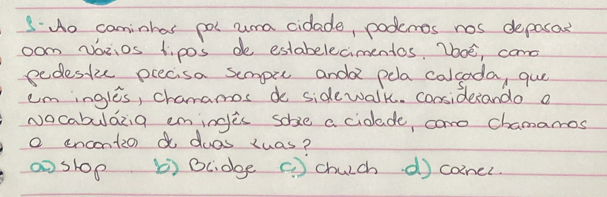 1- Ao caminhar por uma cidade, podemos nos deparar
com vários tipos de estabelecimentos. Você, como
pedestre precisa sempre andar pela calçada, que
em inglês, chamamos de sidewalk. Considerando o
vocabulário em inglês sobre a cidade, como chamamos
o encontro de duas ruas?
a) shop b) Bridge c) church d) corner.